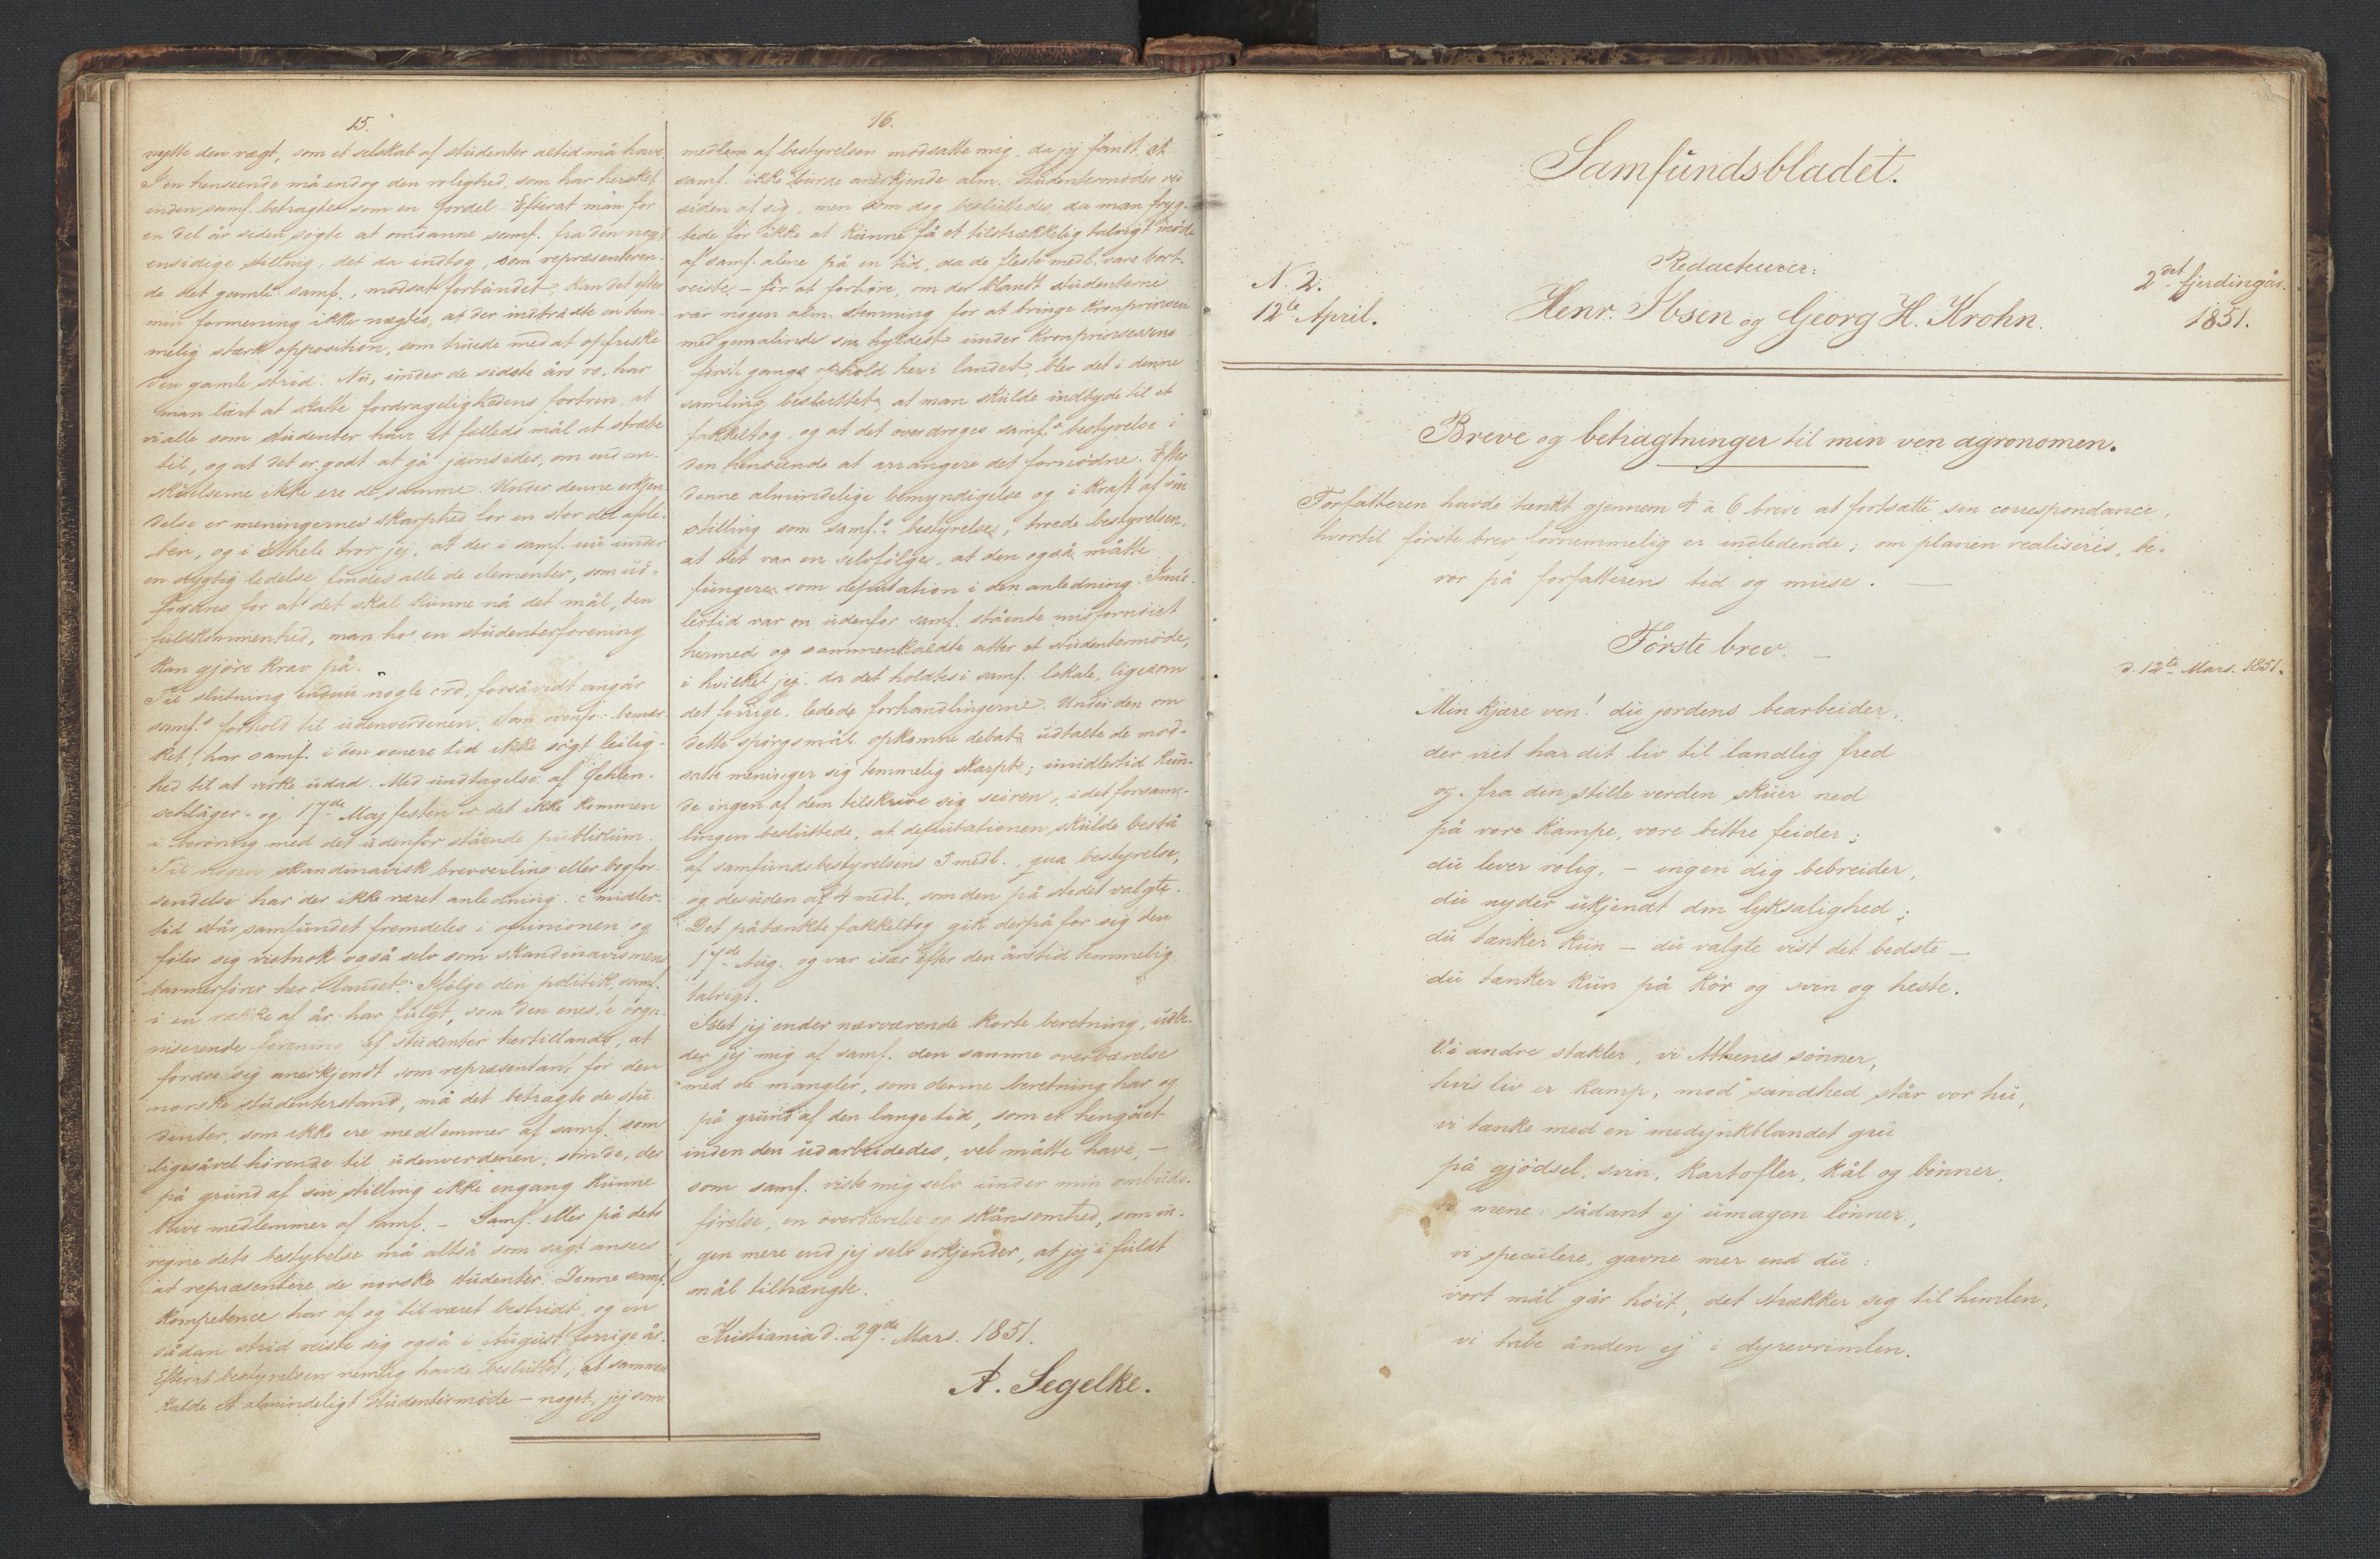 15.
nytte den vægt, som et selskab af studenter altid må have.
I en henseende må endog den rolighed, som har hersket
inden samf. betragtes som en fordel. Efterat man for
en del år siden søgte at omdanne samf. fra den noget
ensidige stilling, det da indtog, som repræsenteren-
de det gamle samf., modsat forbundet, kan det efter
min formening ikke nægtes, at der indtrådte en tem-
melig stærk opposition, som truede med at opfriske
den gamle strid. Nu, under de sidste års ro, har
man lært at skatte fordragelighedens fortrin, at
vi alle som studenter have et fælleds mål at stræbe
til, og at det er godt at gå jævnsides, om end an-
skuelserne ikke ere de samme. Under denne erkjen
delse er meningernes skarphed for en stor del afsle-
ben, og i ethele tror jeg, at der i samf. nu under
en dygtig ledelse findes alle de elementer, som ud-
fordres for at det skal kunne nå det mål, den
fuldkommenhed, man hos en studenterforening
kan gjöre krav på.
Til slutning endnu nogle ord, forsåvidt angår
samf.s forhold til udenverdenen. Som ovenfor bemær
ket, har samf. i den senere tid ikke sögt leilig-
hed til at virke udad. Med undtagelse af Oehlen-
schläger- og 17de Majfesten er det ikke kommen
i beröring med det udenfor stående publikum.
Til nogen skandinavisk brevvexling eller bogfor-
sendelse har der ikke været anledning. Imidler-
tid står samfundet fremdeles i opinionen og
föler sig vistnok også selv som skandinavismens
bannerförer her i landet. Ifölge den politik, samf.
i en række af år har fulgt, som den eneste orga-
niserende forening af studenter hertillands, at
fordre sig anerkjendt som repræsentant for den
norske studenterstand, må det betragte de stu
denter, som ikke ere medlemmer af samf. som
ligesåvel hörende til udenverdenen, som de, der
på grund af sin stilling ikke engang kunne
blive medlemmer af samf. – Samf. eller på dets
vegne dets bestyrelse må altså som sagt ansees
at repræsentere de norske studenter. Denne samf.s
kompetence har af og til været bestridt, og en
sådan strid reiste sig også i August forrige år.
Efterat bestyrelsen nemlig havde besluttet, at sammen
kalde et almindeligt studentermöde – noget, jeg som
16.
medlem af bestyrelsen modsatte mig, da jeg fandt, at
samf. ikke burde anerkjende alm. studentermöder ved
siden af sig, men som dog besluttedes, da man fryg-
tede for ikke at kunne få et tilstrækkelig talrigt möde
af samf. alene på en tid, da de fleste medl. vare bort-
reiste – for at forhöre, om der blandt studenterne
var nogen alm. stemning for at bringe kronprinsen
med gemalinde sin hyldest under kronprinsessens
förste gangs ophold her i landet, blev det i denne
samling besluttet, at man skulde indbyde til et
fakkeltog, og at det overdroges samf.s bestyrelse i
den henseende at arrangere det fornödne. Efter
denne almindelige bemyndigelse og i kraft af sin
stilling som samf.s bestyrelse, troede bestyrelsen,
at det var en selvfölge, at den også måtte
fungere som deputation i den anledning. Imid-
lertid var en udenfor samf. stående misfornöiet
hermed og sammenkaldte atter et studentermöde,
i hvilket jeg, da det holdtes i samf. lokale, ligesom
det forrige, ledede forhandlingerne. Under den om
dette spörgsmål opkomne debat udtalte de mod-
satte meninger sig temmelig skarpt; imidlertid kun-
de ingen af dem tilskrive sig seiren, idet forsam-
lingen besluttede, at deputationen skulde bestå
af samfundsbestyrelsens 5 medl., qua bestyrelse,
og desuden af 4 medl., som den på stedet valgte.
Det påtænkte fakkeltog gik derpå for sig den
17de Aug. og var især efter den årstid temmelig
talrigt.
Idet jeg ender nærværende korte beretning, udbe-
der jeg mig af samf. den samme overbærelse
med de mangler, som denne beretning har og
på grund af den lange tid, som er hengået
inden den udarbeidedes, vel måtte have, –
som samf. viste mig selv under min ombuds-
förelse, en overbærelse og skånsomhed, som in-
gen mere end jeg selv erkjender, at jeg i fuldt
mål tiltrængte.
Kristiania d. 29de Mars. 1851.
A. Segelke.
Samfundsbladet.
Redacteurer:
N. 2. 2det fjerdingår.
12te April. Henr. Ibsen og Georg H. Krohn. 1851.
Breve og betragtninger til min ven agronomen.
Forfatteren havde tænkt gjennem 4 a 6 breve at fortsætte sin correspondance,
hvortil förste brev fornemmelig er indledende; om planen realiseres, be-
ror på forfatterens tid og muse. —
Förste brev. —
d. 12te Mars. 1851.
Min kjære ven! du jordens bearbeider,
der viet har dit liv til landlig fred
og fra din stille verden skuer ned
på vore kampe, vore bittre feider;
du lever rolig, – ingen dig bebreider,
du nyder ukjendt din lyksalighed;
du tænker kun – du valgte vist det bedste –
du tænker kun på kör og svin og heste.
Vi andre stakler, vi Athenes sönner,
hvis liv er kamp, mod sandhed står vor hu,
vi tænke med en medynkblandet gru
på gjödsel, svin, kartofler, kål og bönner,
vi mene: sådant ej umagen lönner,
vi speculere, gavne mer end du:
vort mål går höit, det strækker sig til himlen,
vi tabe ånden ej i dyrevrimlen.